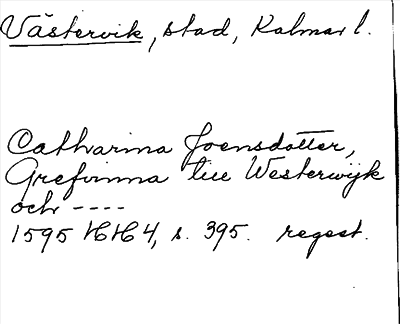 Västervik, stad, Kalmar l.
Catharina Joensdotter,
Grefvinna till Westerwijk
och ----
1595 HH 4, s. 395. regest.